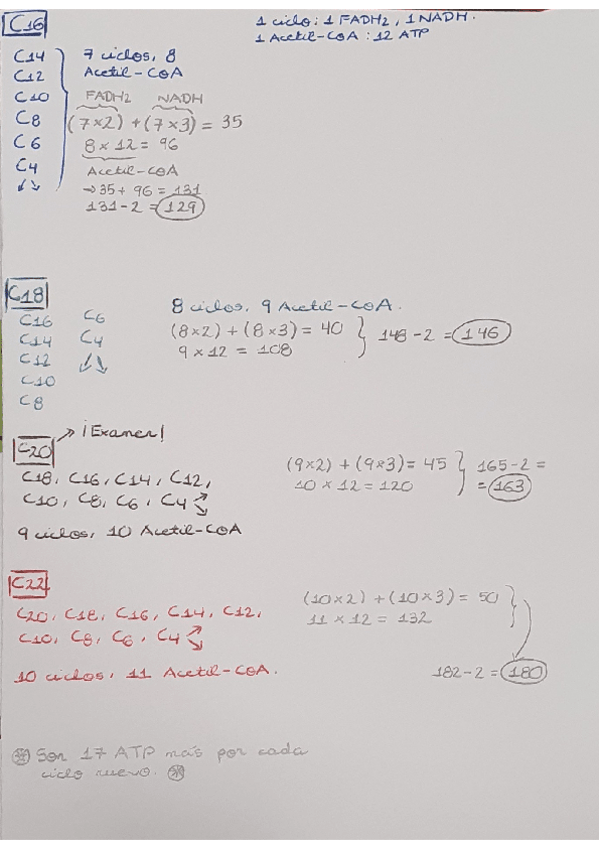 C16
1 ciclo: 1 FADH2, 1 NADH.
1 Acetil-CoA: 12 ATP
C14
C12
C10
C8
C6
C4
7 ciclos, 8
Acetil-CoA
FADH2 NADH
(7x2) + (7x3) = 35
8 x 12 = 96
Acetil-CoA
→ 35 + 96 = 131
131 - 2 = 129
C18
C16
C14
C12
C10
C8
C6
C4
8 ciclos, 9 Acetil-CoA.
(8x2) + (8x3) = 40
9 x 12 = 108
148 - 2 = 146
C20 → ¡Examen!
C18, C16, C14, C12,
C10, C8, C6, C4
9 ciclos, 10 Acetil-CoA
(9x2) + (9x3) = 45
10 x 12 = 120
165 - 2 =
= 163
C22
C20, C18, C16, C14, C12,
C10, C8, C6, C4
10 ciclos, 11 Acetil-CoA.
(10x2) + (10x3) = 50
11 x 12 = 132
182 - 2 = 180
* Son 17 ATP más por cada
ciclo nuevo. *